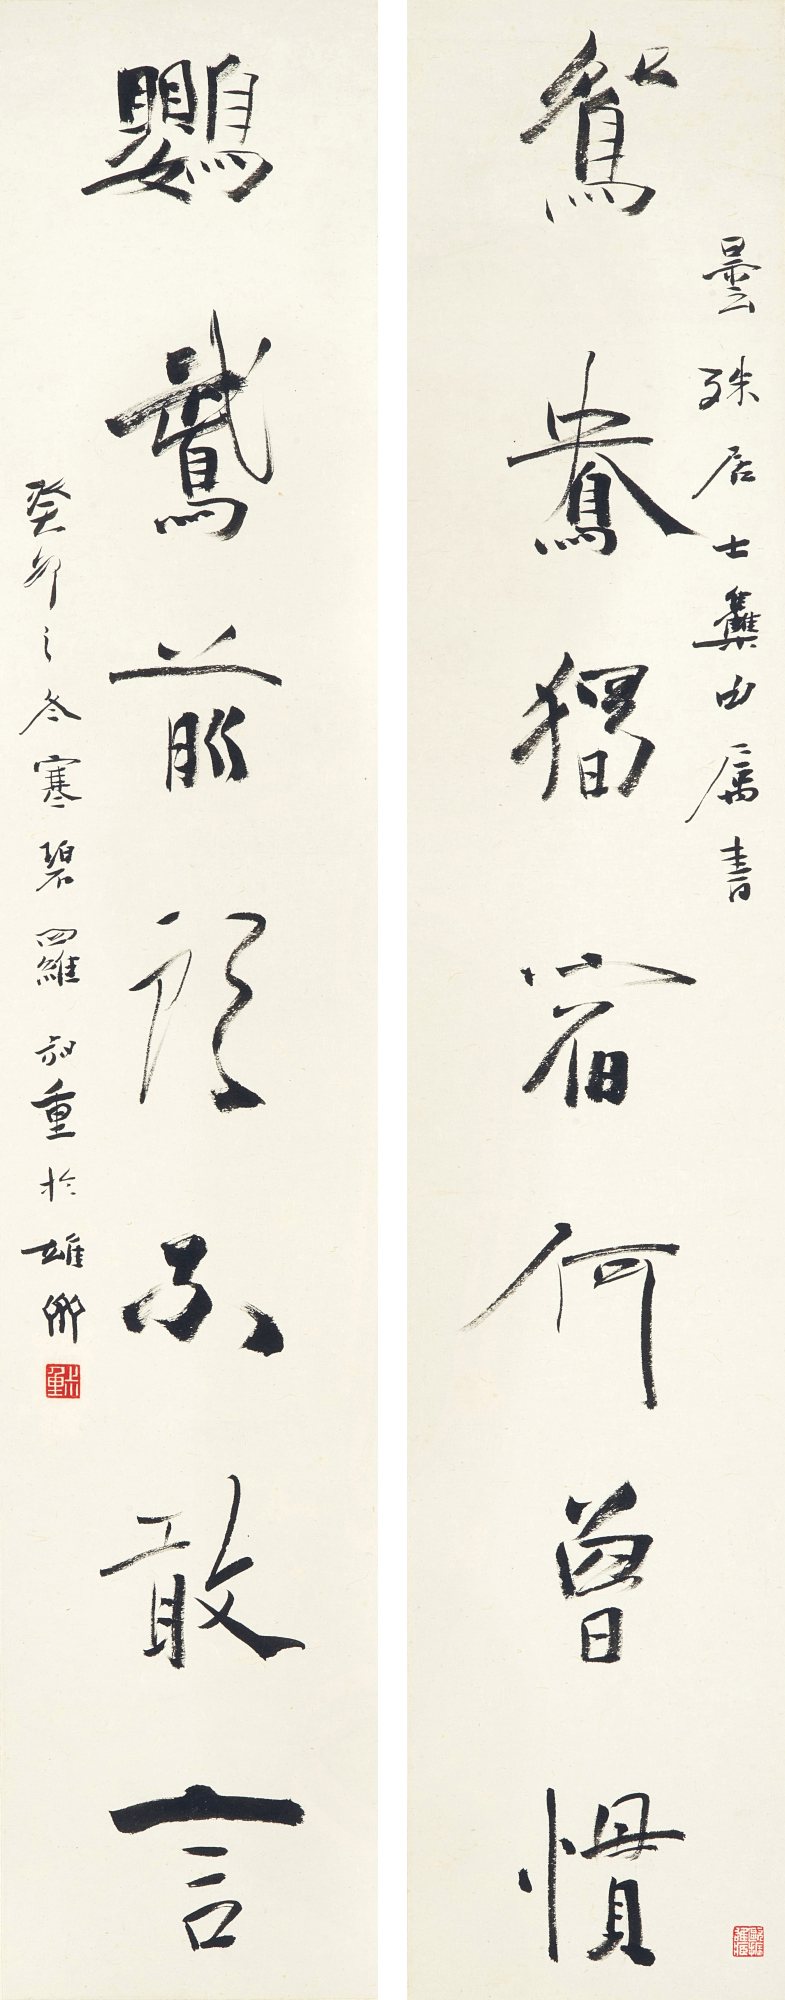 鴛鴦獨宿何曾慣
曇殊居士集句屬書
鸚鵡前頭不敢言
癸卯之冬寒碧羅叔重於雄州